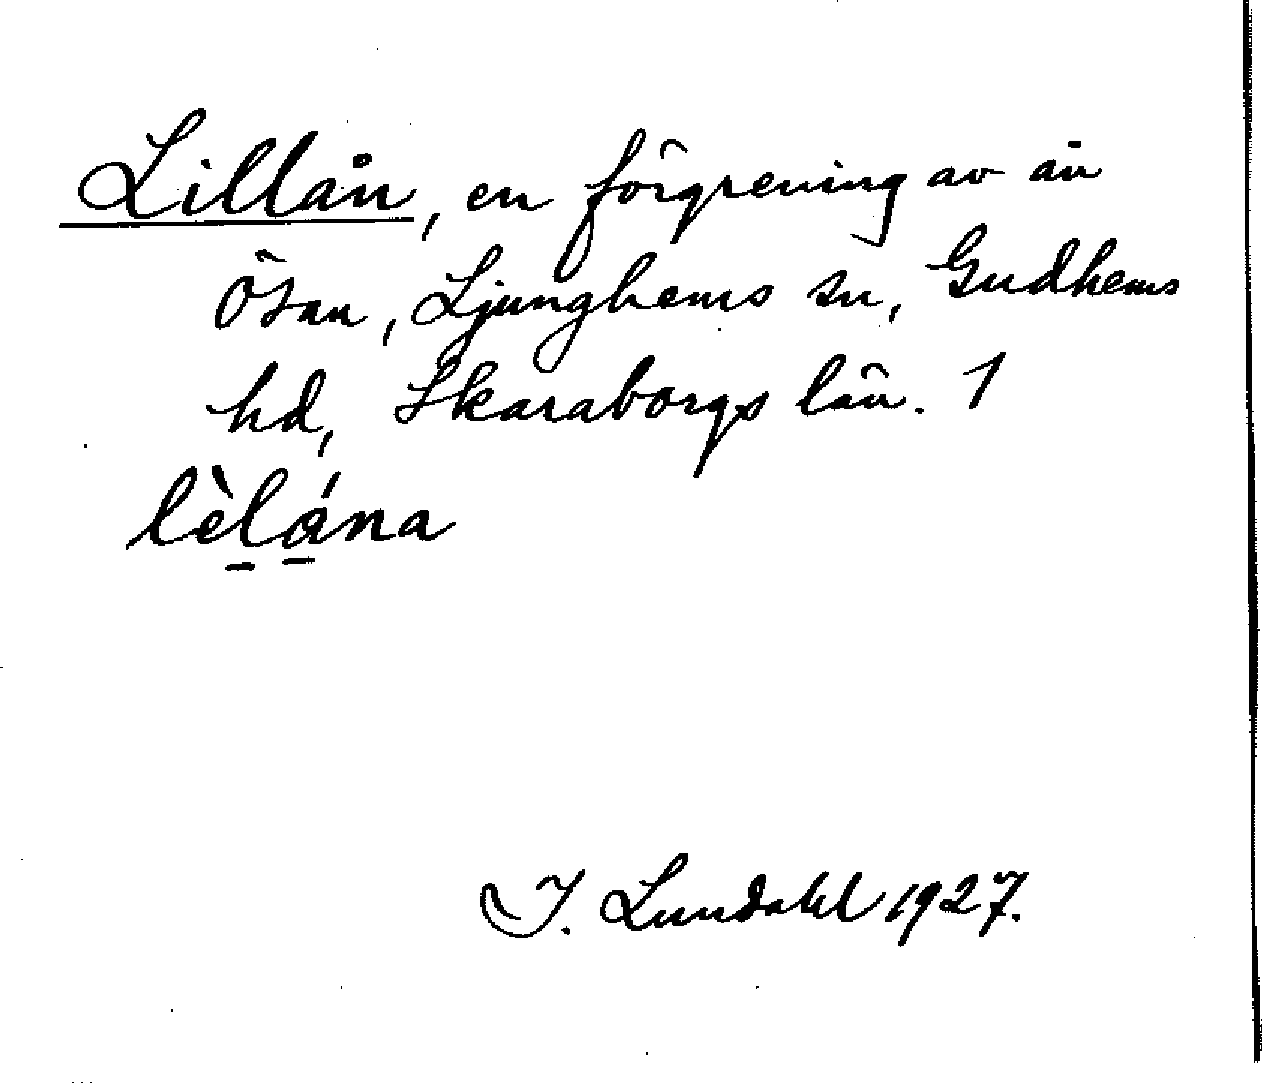 Lillån, en förgrening av ån
Ösan, Ljunghems sn, Gudhems
hd, Skaraborgs län. 1
lèl̠á̠na
I. Lundahl 1927.